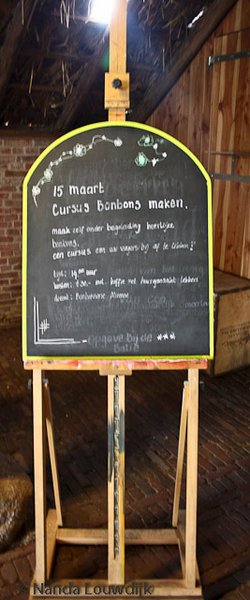 15 maart
Cursus Bonbons maken.
maak zelf onder begeleiding heerlijke
bonbons,
een cursus om uw vingers bij af te likken!
tijd: 14.00 uur
kosten: € 30,- incl. koffie met huisgemaakte lekkers
docent: Bonbonnerie
opgave bij de
balie
© Nanda Louwdijk